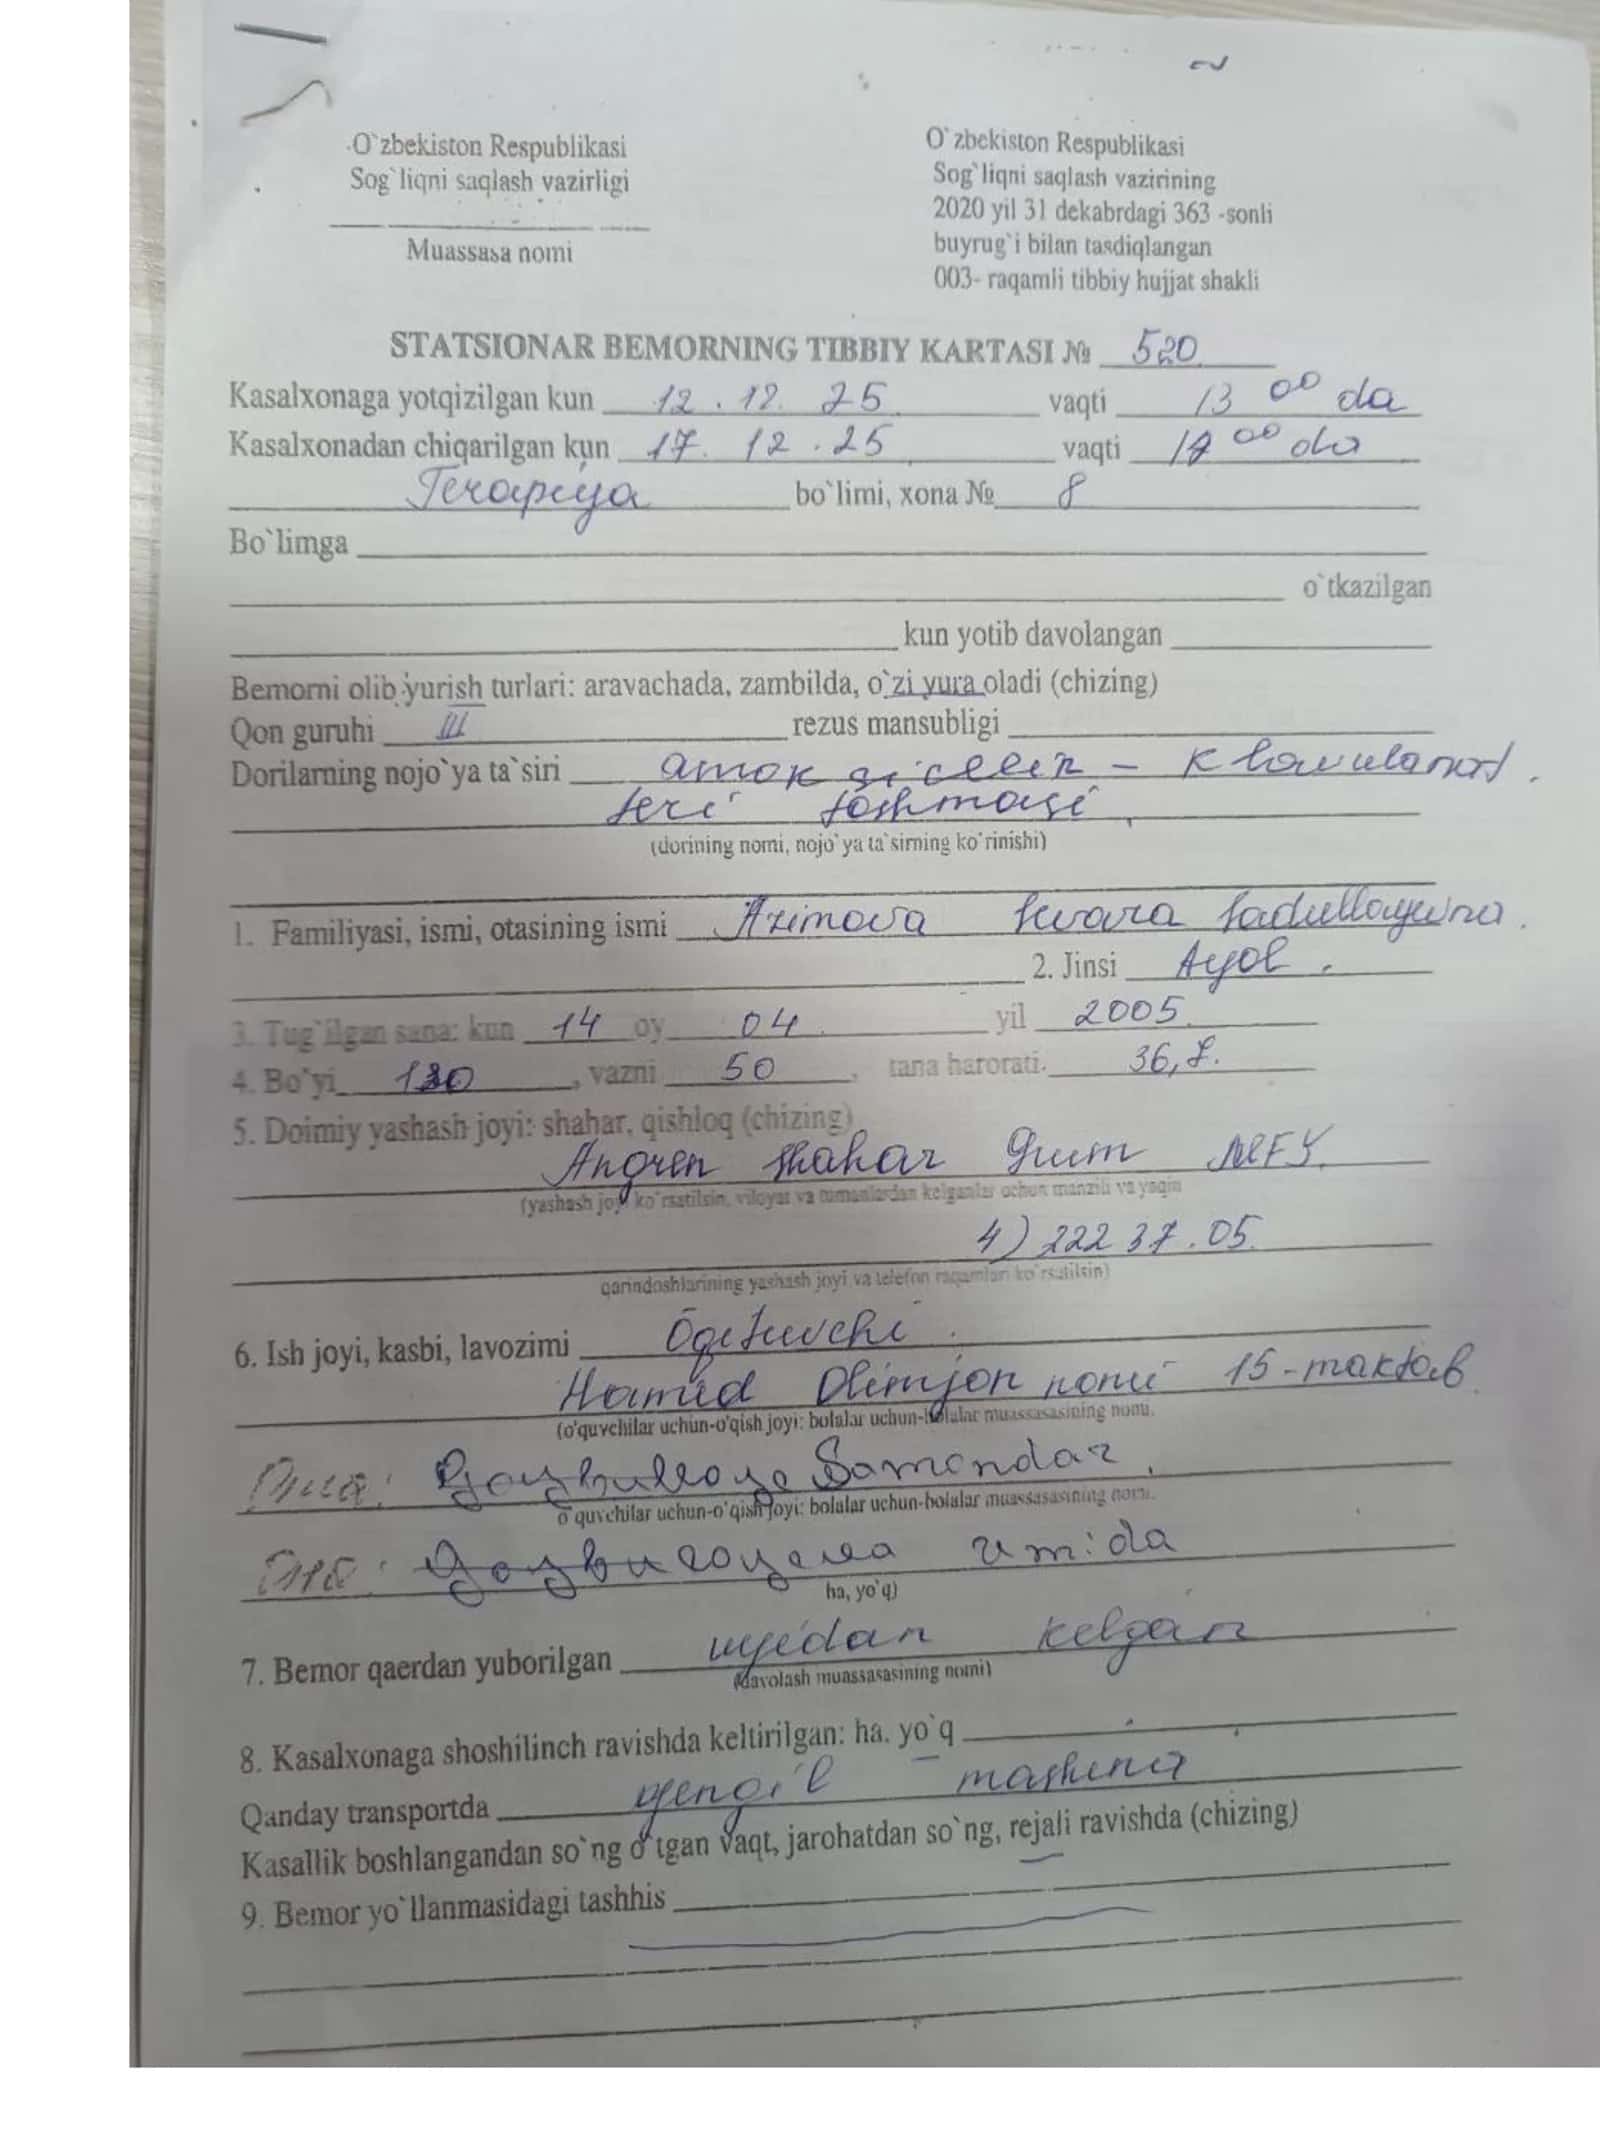 O`zbekiston Respublikasi
Sog`liqni saqlash vazirligi
Muassasa nomi
O`zbekiston Respublikasi
Sog`liqni saqlash vazirining
2020 yil 31 dekabrdagi 363 -sonli
buyrug`i bilan tasdiqlangan
003- raqamli tibbiy hujjat shakli
STATSIONAR BEMORNING TIBBIY KARTASI № 520
Kasalxonaga yotqizilgan kun 12.12.25 vaqti 13 00 da
Kasalxonadan chiqarilgan kun 17.12.25 vaqti 00 da
Terapiya bo`limi, xona № 8
Bo`limga
o`tkazilgan
kun yotib davolangan
Bemorni olib yurish turlari: aravachada, zambilda, o`zi yura oladi (chizing)
Qon guruhi III rezus mansubligi
Dorilarning nojo`ya ta`siri amoksicillin -
teri toshmasi
(dorining nomi, nojo`ya ta`sirning ko`rinishi)
1. Familiyasi, ismi, otasining ismi Azimova
2. Jinsi Ayol.
3. Tug`ilgan sana: kun 14 oy 04 yil 2005
4. Bo`yi , vazni 50, tana harorati.
5. Doimiy yashash joyi: shahar, qishloq (chizing)
Angren shahar MFY.
(yashash joyi ko`rsatilsin, viloyat va tumanlardan kelganlar uchun manzili va yaqin
4) 222 37.05
qarindoshlarining yashash joyi va telefon raqamlari ko`rsatilsin)
6. Ish joyi, kasbi, lavozimi
Hamid Olimjon nomi 15-maktab
(o'quvchilar uchun-o'qish joyi: bolalar uchun-bolalar muassasasining nomi.
Samandar
o`quvchilar uchun-o`qish joyi: bolalar uchun-bolalar muassasasining nomi.
Umida
ha, yo`q)
7. Bemor qaerdan yuborilgan uyidan kelgan
(davolash muassasasining nomi)
8. Kasalxonaga shoshilinch ravishda keltirilgan: ha. yo`q
Qanday transportda yengil mashina
Kasallik boshlangandan so`ng o`tgan vaqt, jarohatdan so`ng, rejali ravishda (chizing)
9. Bemor yo`llanmasidagi tashhis